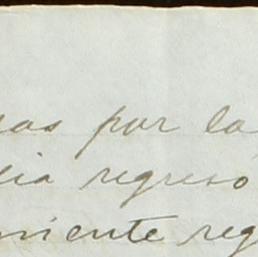 as por la
ia regresó
mente reg